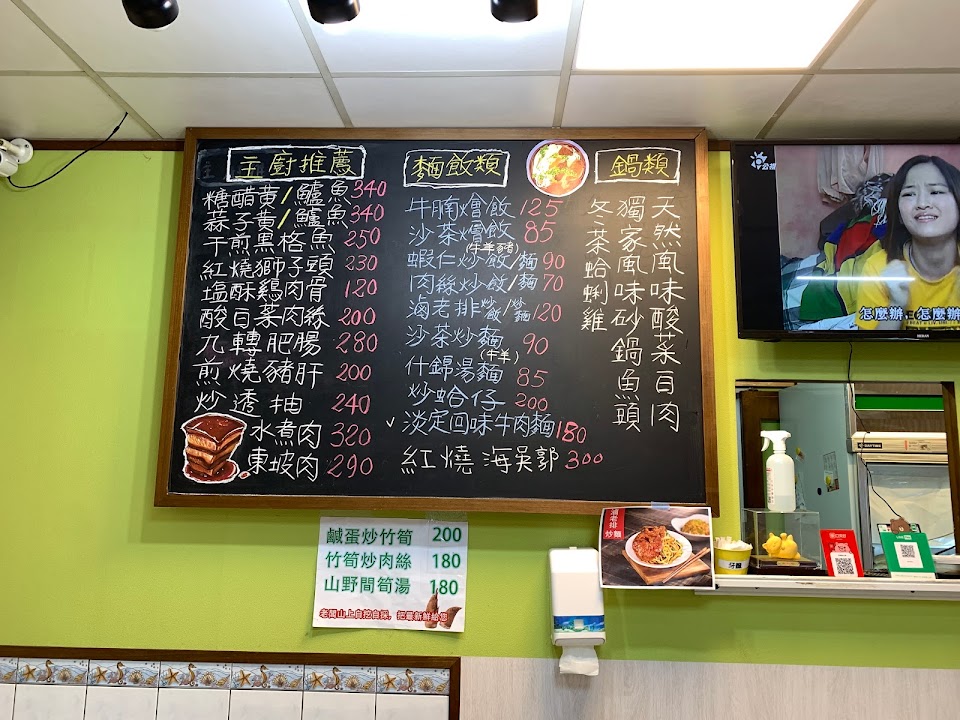 主廚推薦
糖醋黃/鱸魚 340
蒜子黃/鱸魚 340
干煎黑格魚 250
紅燒獅子頭 230
塩酥雞肉骨 120
酸白菜肉絲 200
九轉肥腸 280
煎燒豬肝 200
炒透抽 240
水煮肉 320
東坡肉 290
麵飯類
牛腩燴飯 125
沙茶燴飯 85
(牛羊豬)
蝦仁炒飯/麵 90
肉絲炒飯/麵 70
滷老排炒飯/炒麵 120
沙茶炒麵 90
(牛羊)
什錦湯麵 85
炒蛤仔 200
✓淡定回味牛肉麵 180
紅燒海吳郭 300
鍋類
天然風味酸菜白肉
獨家風味砂鍋魚頭
冬茶蛤蜊雞
公視
怎麼辦，怎麼辦
鹹蛋炒竹筍 200
竹筍炒肉絲 180
山野間筍湯 180
老闆山上自挖自採，把最新鮮給您
滷老排
炒麵
牙籤